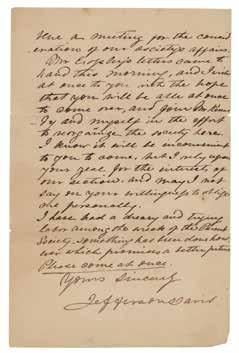 Here a meeting for the consid
eration of our society's affairs.
Mr letters came to
hand this morning, and I write
at once to you with the hope
that you will be able at once
to come over, and join
and myself in the effort
to reorganize the society here.
I know it will be inconvenient
to you to come. but I rely upon
your zeal for the interests of
our section. and may I not
say on your willingness to oblige
me personally.
I have had a dreary and trying
labor among the wreck of the Parent
Society. something has been done how
ever which promises a better future
Please come at once.
Yours Sincerely
Jefferson Davis